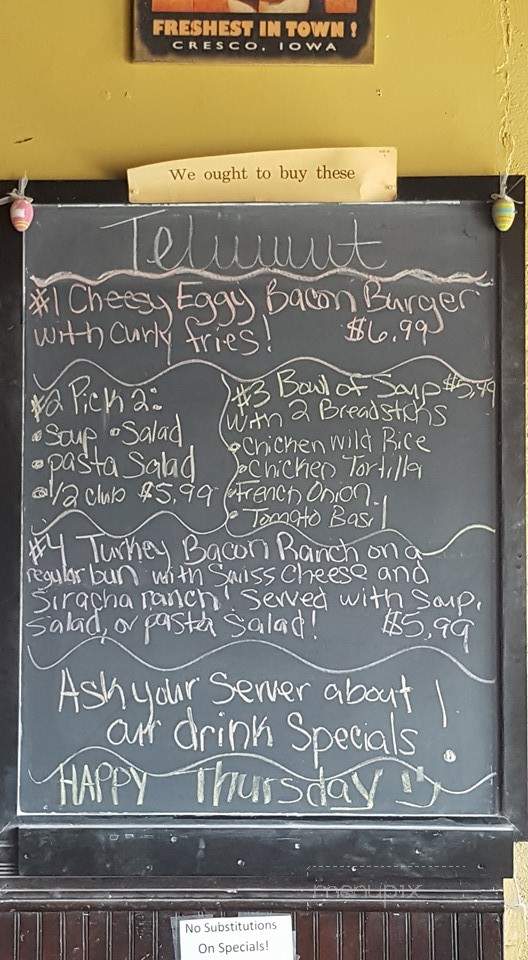 FRESHEST IN TOWN!
CRESCO, IOWA
We ought to buy these
#1 Cheesy Eggy Bacon Burger
with Curly fries! $6.99
#2 Pick 2:
• Soup • Salad
• pasta Salad
• 1/2 club $5.99
#3 Bowl of Soup $5.49
with 2 Breadsticks
• Chicken Wild Rice
• Chicken Tortilla
• French Onion
• Tomato Basil
#4 Turkey Bacon Ranch on a
regular bun with Swiss Cheese and
Siracha ranch! Served with Soup,
Salad, or pasta Salad! $5.99
Ask your Server about
our drink Specials!
HAPPY Thursday
menupix
No Substitutions
On Specials!